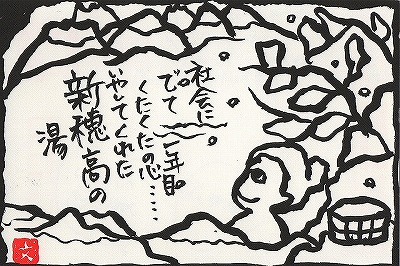 社会に
でて一年目
くたくたの心……
いやしてくれた
新穂高の
湯